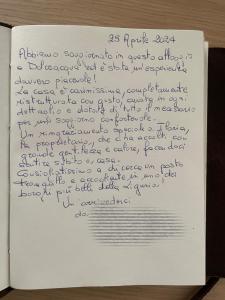 25 Aprile 2024
Abbiamo soggiornato in questo alloggio
a Dolceacqua ed è stata un'esperienza
davvero piacevole!
La casa è carinissima, completamente
ristrutturata con gusto, curata in ogni
dettaglio e dotata di tutto il necessario
per un soggiorno confortevole.
Un ringraziamento speciale a
la proprietaria, che ci ha accolti con
grande gentilezza e calore, facendoci
sentire subito a casa.
Consigliatissimo a chi cerca un posto
tranquillo e accogliente in uno dei
borghi più belli della Liguria.
Un arrivederci
da